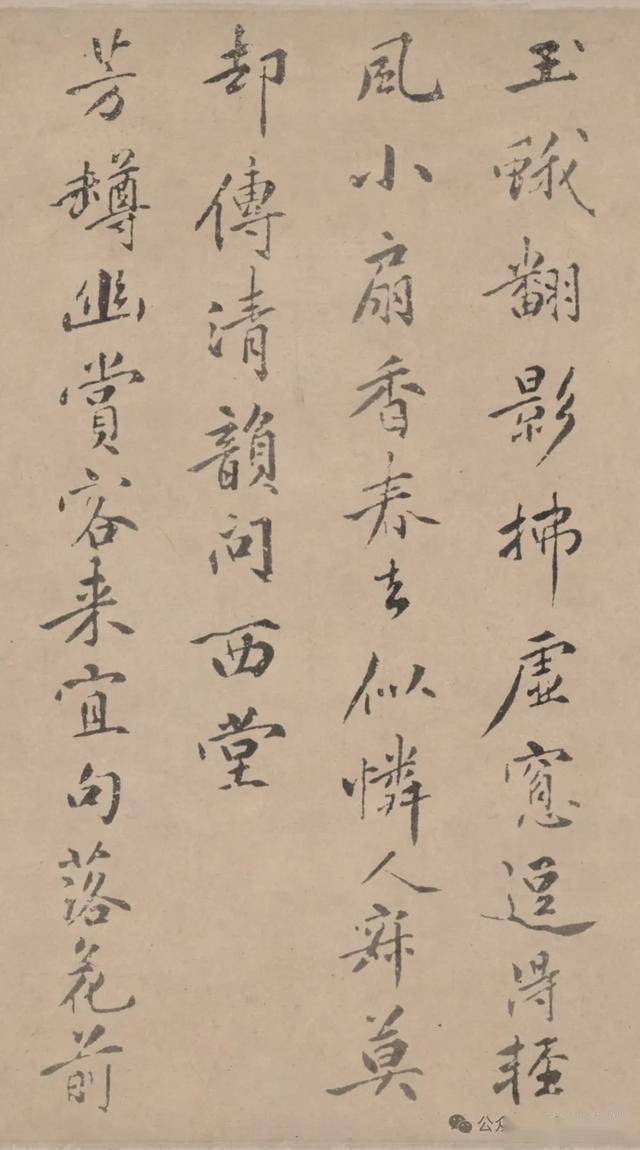 玉蛾翻影拂虚窓逗得輕
風小扇香春去似憐人寂莫
却傳清韻問西堂
芳罇幽賞客来宜句落花前
公众